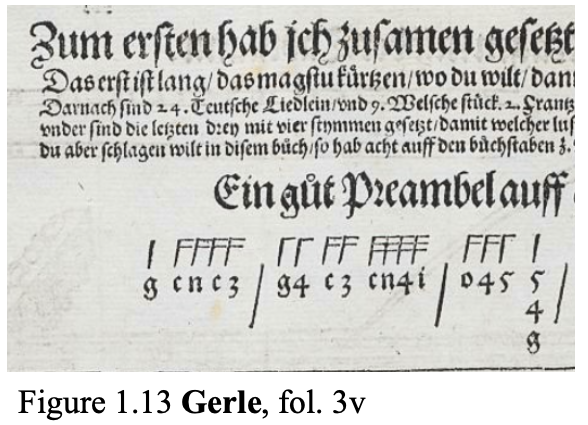 Zum ersten hab jch zusamen gesetzt
Das erst ist lang/ das magstu kürtzen/ wo du wilt/ dan
Darnach sind 24. Teutsche Liedlein/ vnd 9. Welsche stück. 2. Frantz
vnder sind die letzten drey mit vier stymmen gesetzt/ damit welcher lus
du aber schlagen wilt in disem buͤch/ so hab acht auff den buͤchstaben z.
Ein guͤt Preambel auff
g c n c z / g 4 c z c n 4 i / o 4 5 5 /
4
g
Figure 1.13 Gerle, fol. 3v